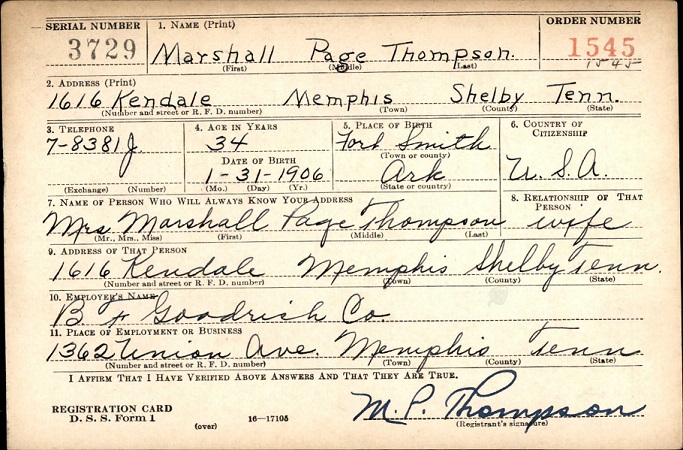 SERIAL NUMBER 1. NAME (Print) ORDER NUMBER
3729 Marshall Page Thompson. 1545
(First) (Middle) (Last) 1545
2. ADDRESS (Print)
1616 Kendale Memphis Shelby Tenn.
(Number and street or R. F. D. number) (Town) (County) (State)
3. TELEPHONE 4. AGE IN YEARS 5. PLACE OF BIRTH 6. COUNTRY OF CITIZENSHIP
7-8381J 34 Fort Smith
DATE OF BIRTH (Town or county)
1-31-1906 Ark U.S.A.
(Exchange) (Number) (Mo.) (Day) (Yr.) (State or country)
7. NAME OF PERSON WHO WILL ALWAYS KNOW YOUR ADDRESS 8. RELATIONSHIP OF THAT PERSON
Mrs Marshall Page Thompson wife
(Mr., Mrs., Miss) (First) (Middle) (Last)
9. ADDRESS OF THAT PERSON
1616 Kendale Memphis Shelby Tenn.
(Number and street or R. F. D. number) (Town) (County) (State)
10. EMPLOYER'S NAME
B F Goodrish Co.
11. PLACE OF EMPLOYMENT OR BUSINESS
1362 Union Ave. Memphis Tenn
(Number and street or R. F. D. number) (Town) (County) (State)
I AFFIRM THAT I HAVE VERIFIED ABOVE ANSWERS AND THAT THEY ARE TRUE.
REGISTRATION CARD M. P. Thompson
D. S. S. Form 1 (over) 16—17105 (Registrant's signature)